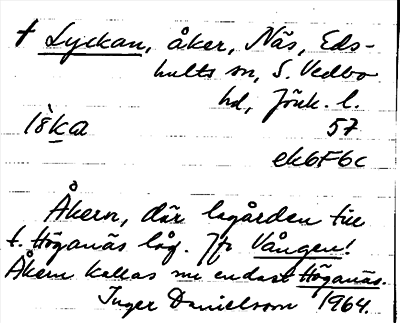 † Lyckan, åker, Näs, Eds-
hults sn, S. Vedbo
hd, Jönk. l.
l̀ẁka 57
ek6F6c
Åkern, där lagården till
t. Höganäs låg. Jfr Vången!
Åkern kallas nu endast Höganäs.
Inger Danielsson 1964.